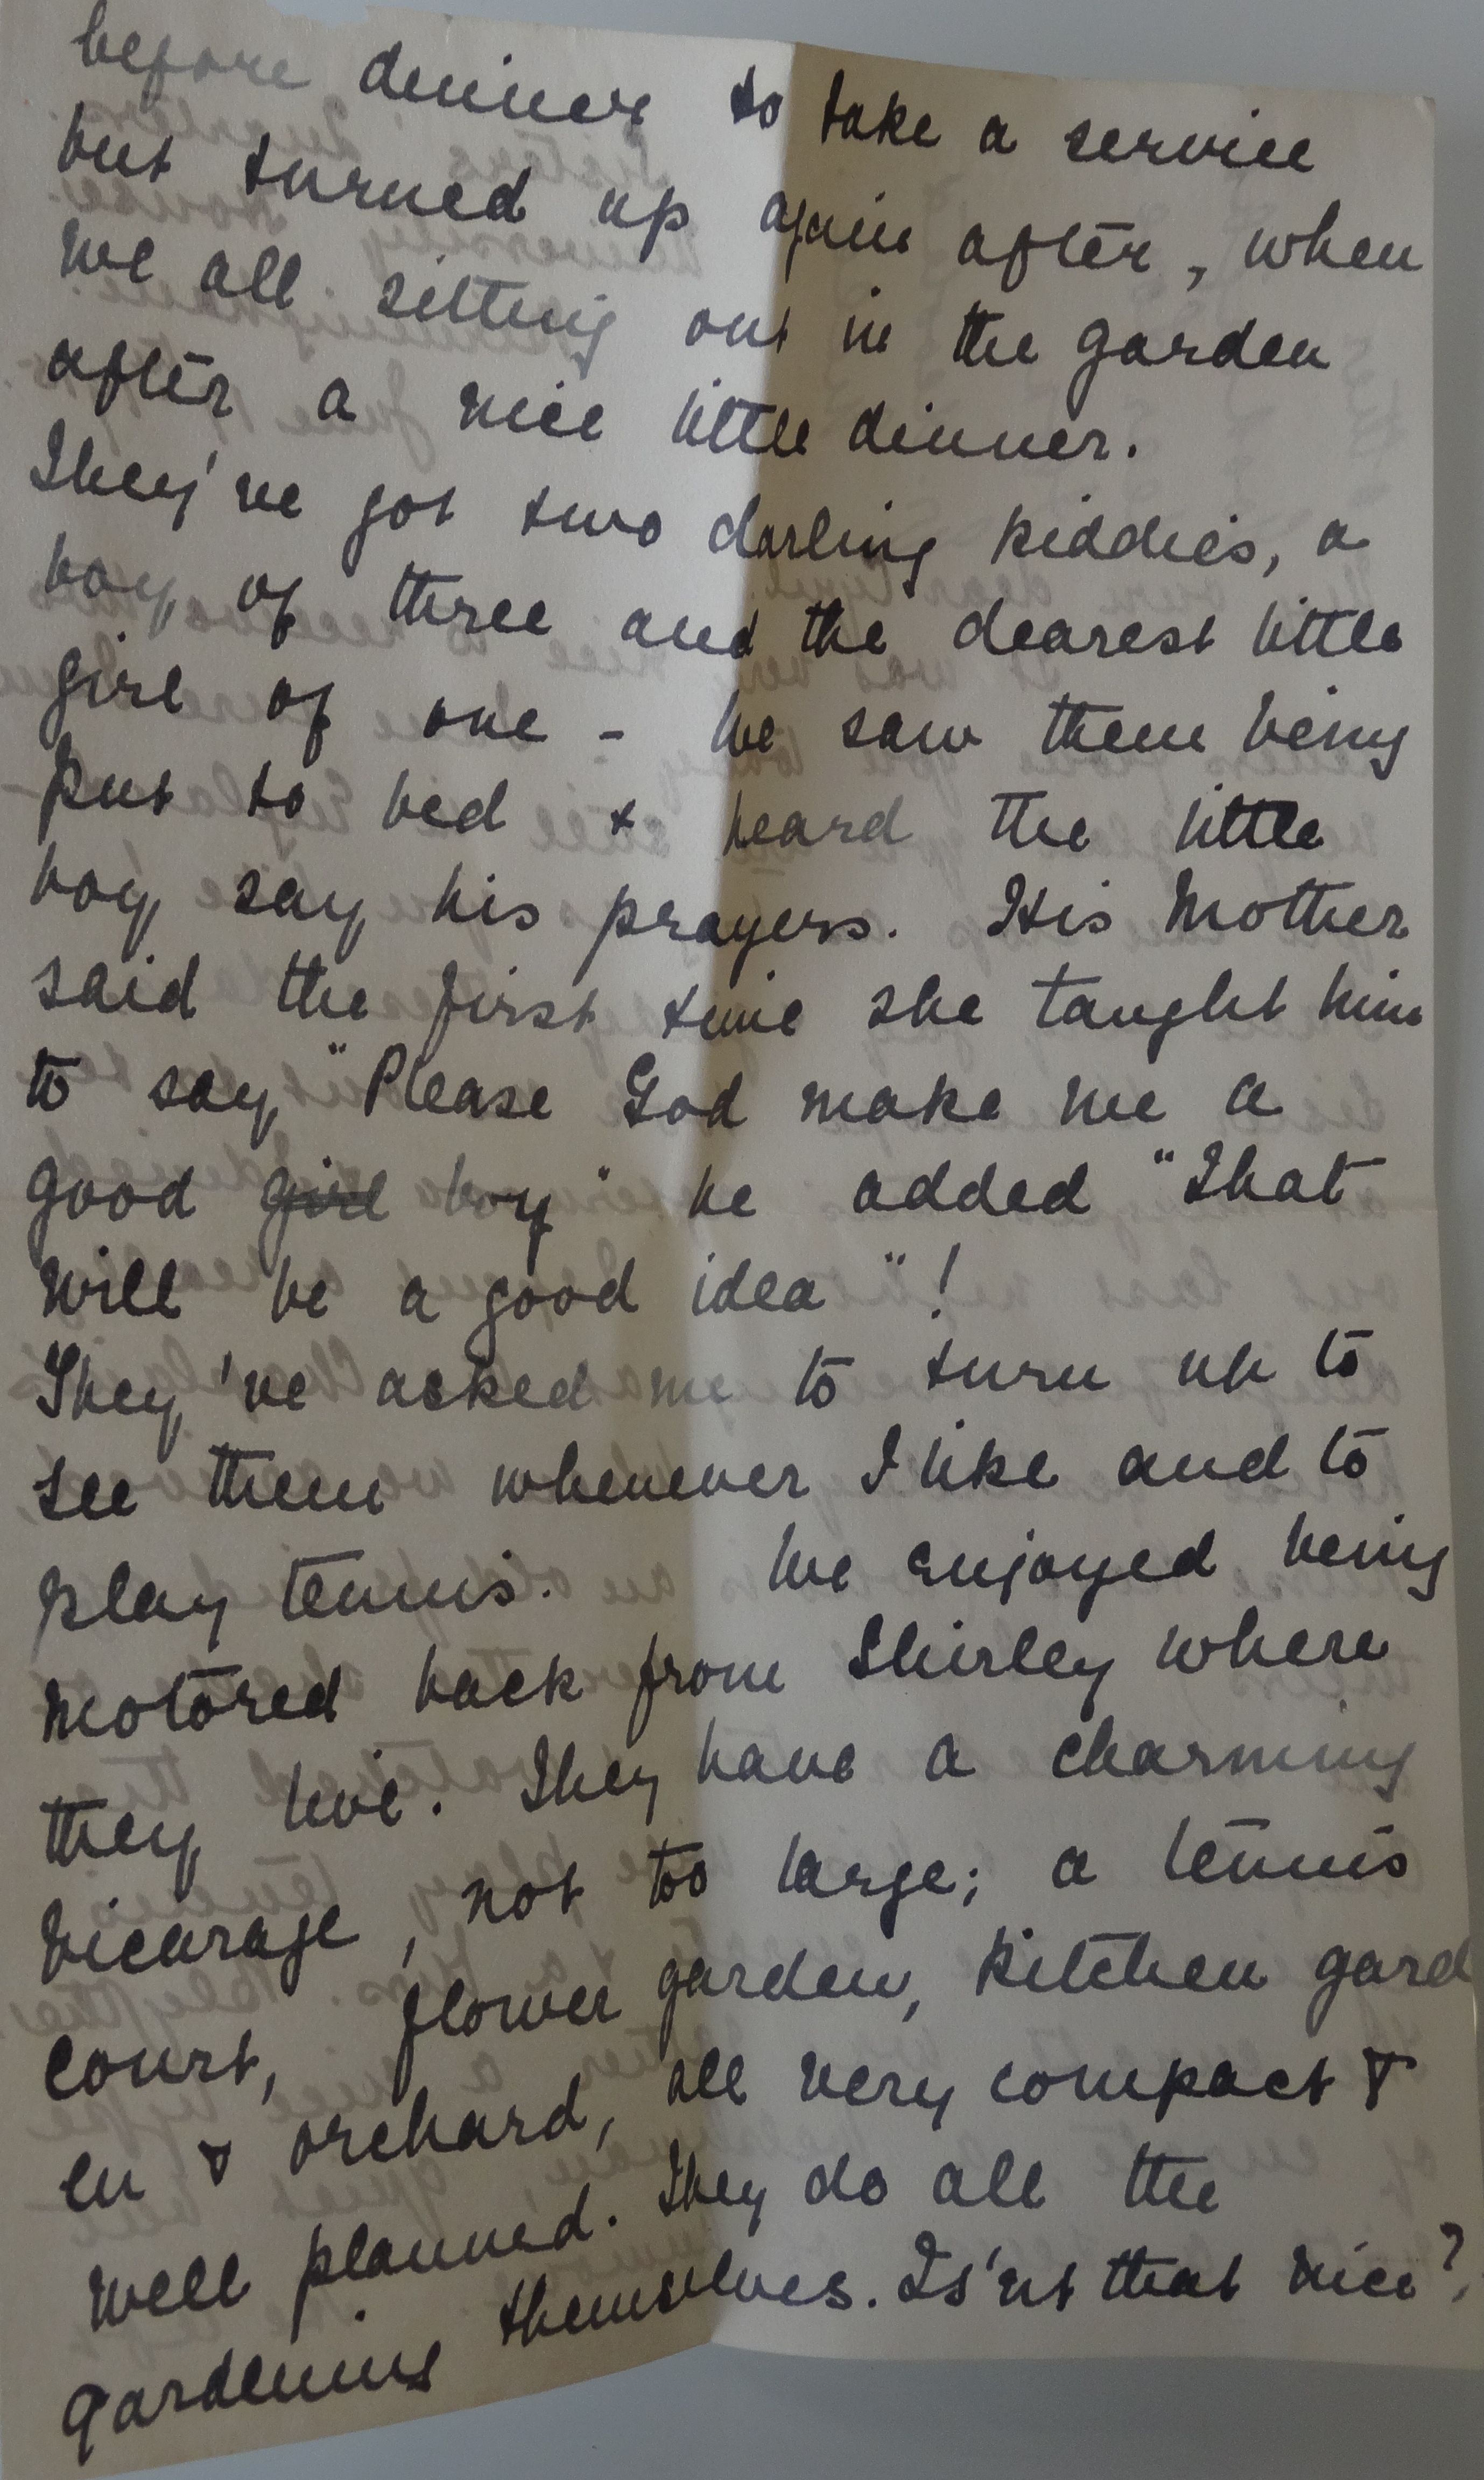 before dinner to take a service
but turned up again after, when
we all sitting out in the garden
after a nice little dinner.
They've got two darling kiddies, a
boy of three and the dearest little
girl of one - We saw them being
put to bed & heard the little
boy say his prayers. His Mother
said the first time she taught him
to say "Please God make me a
good girl boy" he added "That
will be a good idea"!
They've asked me to turn up to
see them whenever I like and to
play tennis. We enjoyed being
motored back from Shirley where
they live. They have a charming
Vicarage, not too large; a tennis
court, flower garden, kitchen gard
en & orchard, all very compact &
well planned. They do all the
gardening themselves. Is'nt that nice?